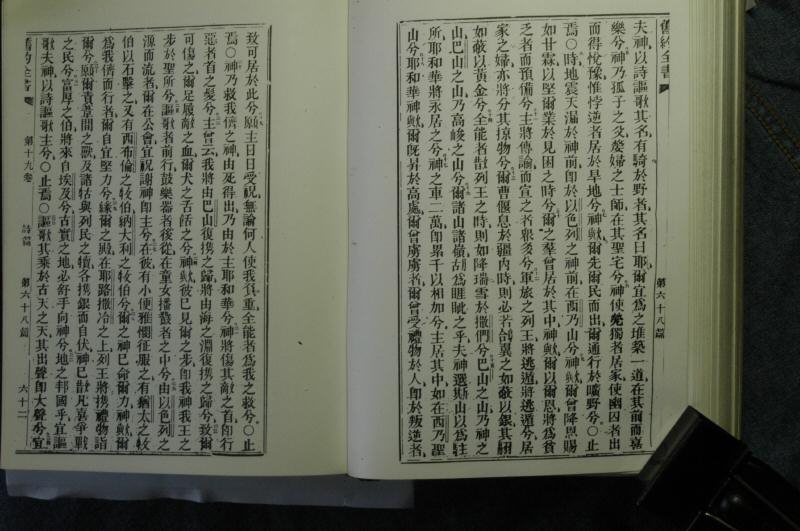 舊約全書
第六十八篇
夫神以詩謳歌其名有騎於野者其名曰耶爾宜為之堆築一道在其前而喜
樂兮神乃孤子之父嫠婦之士師在其聖宅兮神使煢獨者居家使幽囚者出
而得悅豫惟悖逆者居於旱地兮神歟爾先爾民而出爾通行於曠野兮○止
焉○時地震天漏於神前即於以色列之神前在西乃山兮神歟爾曾降恩賜
如甘霖以堅爾業於見困之時兮爾之羣曾居於其中神歟爾以爾恩將為貧
乏者而預備兮主將傳諭而宣之者眾多兮軍旅之列王將逃遁將逃遁兮居
家之婦亦將分其掠物兮爾曹偃息於疆內時則必若鴿翼之如蔽以銀其翮
如蔽以黃金兮全能者散列王之時則如降瑞雪於撒們兮巴山之山乃神之
山巴山之山乃高峻之山兮爾諸山諸嶺胡為睚眦之乎夫神選斯山以為駐
所耶和華將永居之兮神之車二萬即累千以相加兮主居其中如在西乃聖
山兮耶和華神歟爾既昇於高處爾曾虜虜者爾曾受禮物於人即於叛逆者
致可居於此兮願主日日受祝無論何人使我負重全能者為我之救兮○止
焉○神乃救我儕之神由死得出乃由於主耶和華兮神將傷其敵之首即行
惡者首之髮兮主曾云我將由巴山復携之歸將由海之淵復携之歸兮致爾
可傷之爾足履敵之血爾犬之舌餂之兮神歟彼已見爾之步即我神我王之
步於聖所兮謳歌者前行鼓樂器者後從在童女播鼗者之中兮由以色列之
源而流者爾在公會宜祝謝神即主兮在彼有小便雅憫征服之有猶大之牧
伯以石擊之又有西布倫之牧伯納大利之牧伯兮爾之神已命爾力神歟爾
為我儕而行者爾自宜堅力兮緣爾之殿在耶路撒冷之上列王將携禮物詣
爾兮願爾責葦間之獸及諸牯與列民之犢各携銀而自伏神已散凡喜爭戰
之民兮富厚之伯將來自埃及兮古實之地必舒手向神兮地之邦國乎宜謳
歌夫神以詩謳歌主兮○止焉○謳歌其乘於古天之天其出聲即大聲兮宜
舊約全書
第十九卷
詩篇
第六十八篇
六十二